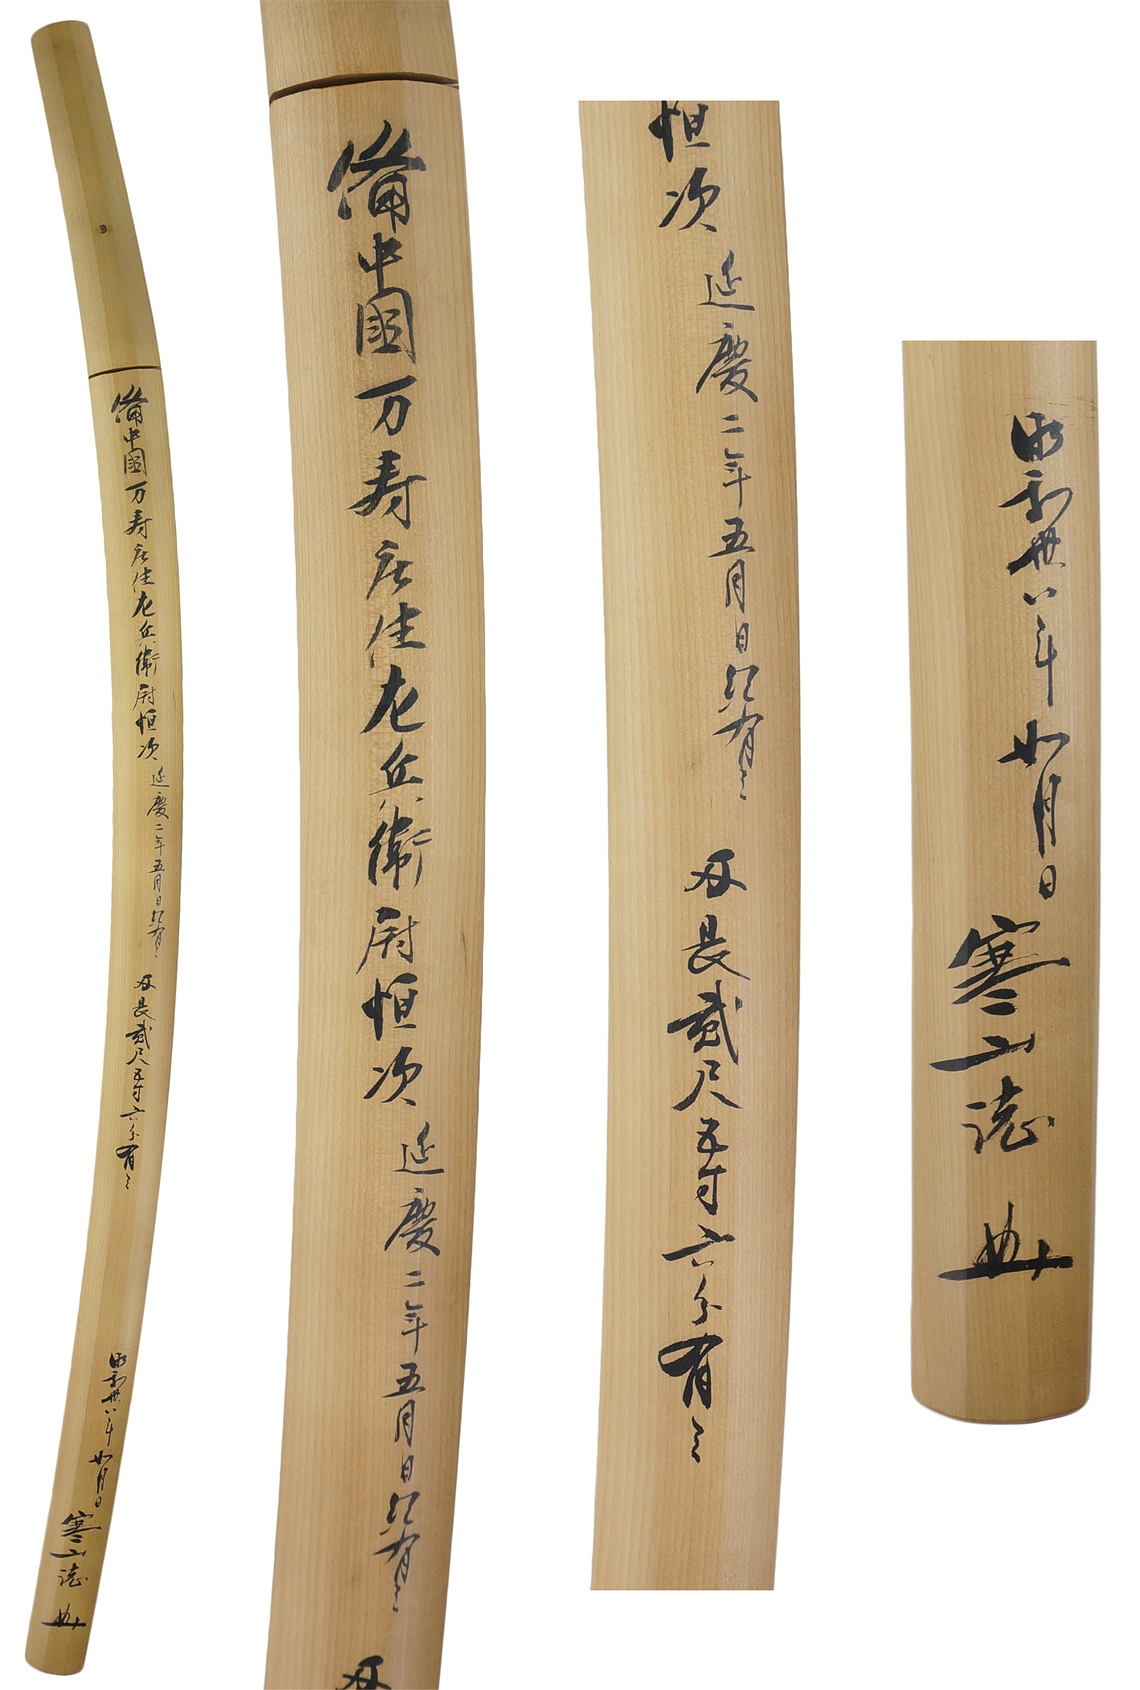 備中國万寿庄住左兵衛尉恒次 延慶二年五月日紀有之 刃長貳尺五寸六分有之
昭和卅八年如月日 寒山誌
備中國万寿庄住左兵衛尉恒次 延慶二年五月日紀有之 刃
恒次 延慶二年五月日紀有之 刃長貳尺五寸六分有之
昭和卅八年如月日
寒山誌